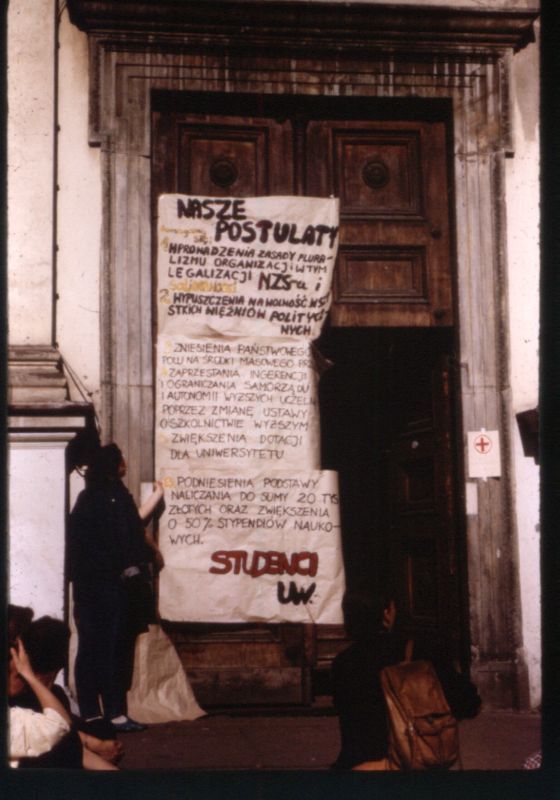 NASZE
POSTULATY
1. WPROWADZENIA ZASADY PLURA-
LIZMU ORGANIZACJI W TYM
LEGALIZACJI NZS-u i
Solidarności
2. WYPUSZCZENIA NA WOLNOŚĆ WSZY
STKICH WIĘŹNIÓW POLITYCZ
NYCH
3. ZNIESIENIA PAŃSTWOWEGO
POLU NA ŚRODKI MASOWEGO PRZ
4. ZAPRZESTANIA INGERENCJI
I OGRANICZANIA SAMORZĄDU
I AUTONOMII WYŻSZYCH UCZELNI
POPRZEZ ZMIANĘ USTAWY
O SZKOLNICTWIE WYŻSZYM
5. ZWIĘKSZENIA DOTACJI
DLA UNIWERSYTETU
6. PODNIESIENIA PODSTAWY
NALICZANIA DO SUMY 20 TYS
ZŁOTYCH ORAZ ZWIĘKSZENIA
O 50% STYPENDIÓW NAUKO-
WYCH.
STUDENCI
UW.